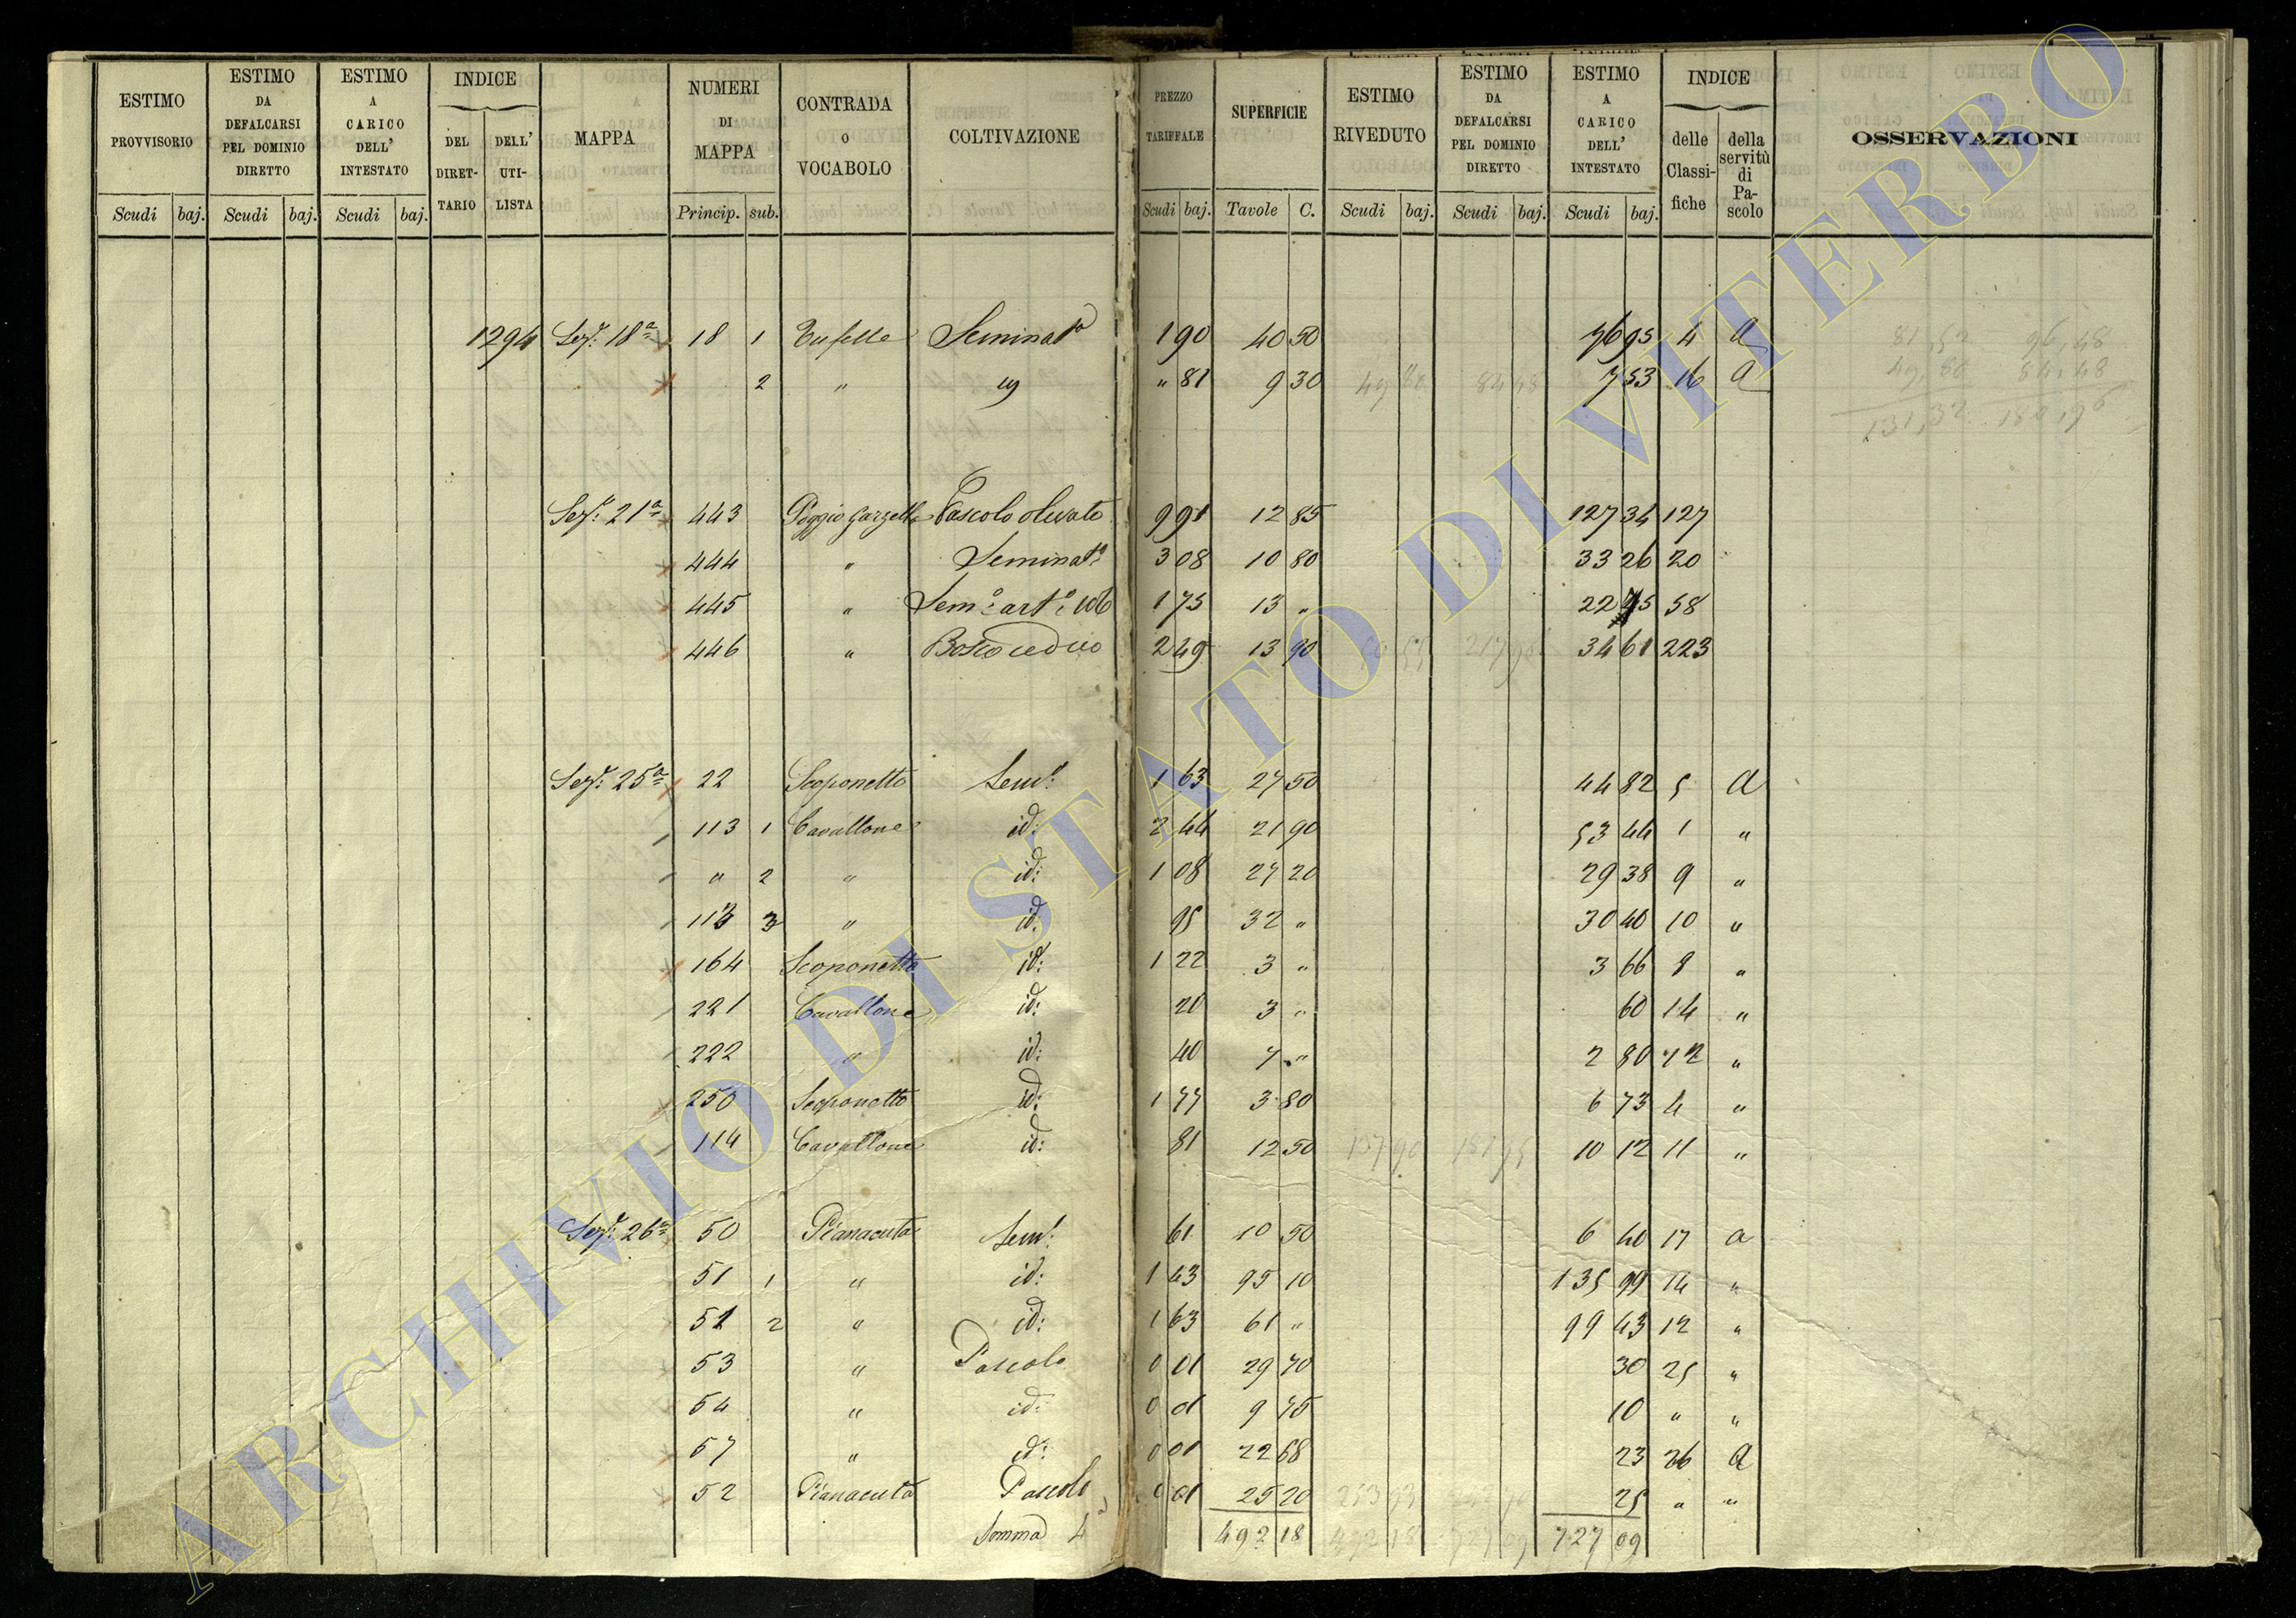 ESTIMO PROVVISORIO | ESTIMO DA DEFALCARSI PEL DOMINIO DIRETTO | ESTIMO A CARICO DELL' INTESTATO | INDICE DEL DIRET-TARIO | DELL' UTI-LISTA | MAPPA | NUMERI DI MAPPA | CONTRADA o VOCABOLO | COLTIVAZIONE | PREZZO TARIFFALE | SUPERFICIE | ESTIMO RIVEDUTO | ESTIMO DA DEFALCARSI PEL DOMINIO DIRETTO | ESTIMO A CARICO DELL' INTESTATO | INDICE delle Classi-fiche | della servitù di Pa-scolo | OSSERVAZIONI
Scudi baj. Scudi baj. Scudi baj. Princip. sub. Scudi baj. Tavole C. Scudi baj. Scudi baj. Scudi baj.
1294 Sez: 18ª 18 1 Tufelle Seminatº 1 90 40 50 76 95 4 A
2 " " 81 9 30 49 80 84 48 7 53 16 A
81,52 96,48
49,80 84,48
131,32
Sez: 21ª 443 Poggio Garzella Pascolo olivato 9 91 12 85 127 34 127
444 " Seminatº 3 08 10 80 33 26 20
445 " Semº artº 1 75 13 " 22 75 58
446 " Bosco ceduo 2 49 13 90 50 55 217 96 34 61 223
Sez: 25ª 22 Scoponetto Semº 1 63 27 50 44 82 5 A
113 1 Cavallone id: 2 44 21 90 53 44 1 "
" 2 " id: 1 08 27 20 29 38 9 "
113 3 " id: 95 32 " 30 40 10 "
164 Scoponetto id: 1 22 3 " 3 66 8 "
221 Cavallone id: 20 3 " 60 14 "
222 " id: 40 7 " 2 80 12 "
250 Scoponetto id: 1 77 3 80 6 73 4 "
114 Cavallone id: 81 12 50 137 90 181 95 10 12 11 "
Sez: 26ª 50 Pianacuta Semº 61 10 50 6 40 17 a
51 1 " id: 1 43 95 10 135 99 14 "
51 2 " id: 1 63 61 " 99 43 12 "
53 " Pascolo 0 01 29 70 30 25 "
54 " id: 0 01 9 75 10 " "
57 " id: 0 01 22 68 23 26 A
52 Pianacuta Pascolo 0 01 25 20 253 93 25 " "
Somma 492 18 492 18 727 09 727 09
ARCHIVIO DI STATO DI VITERBO